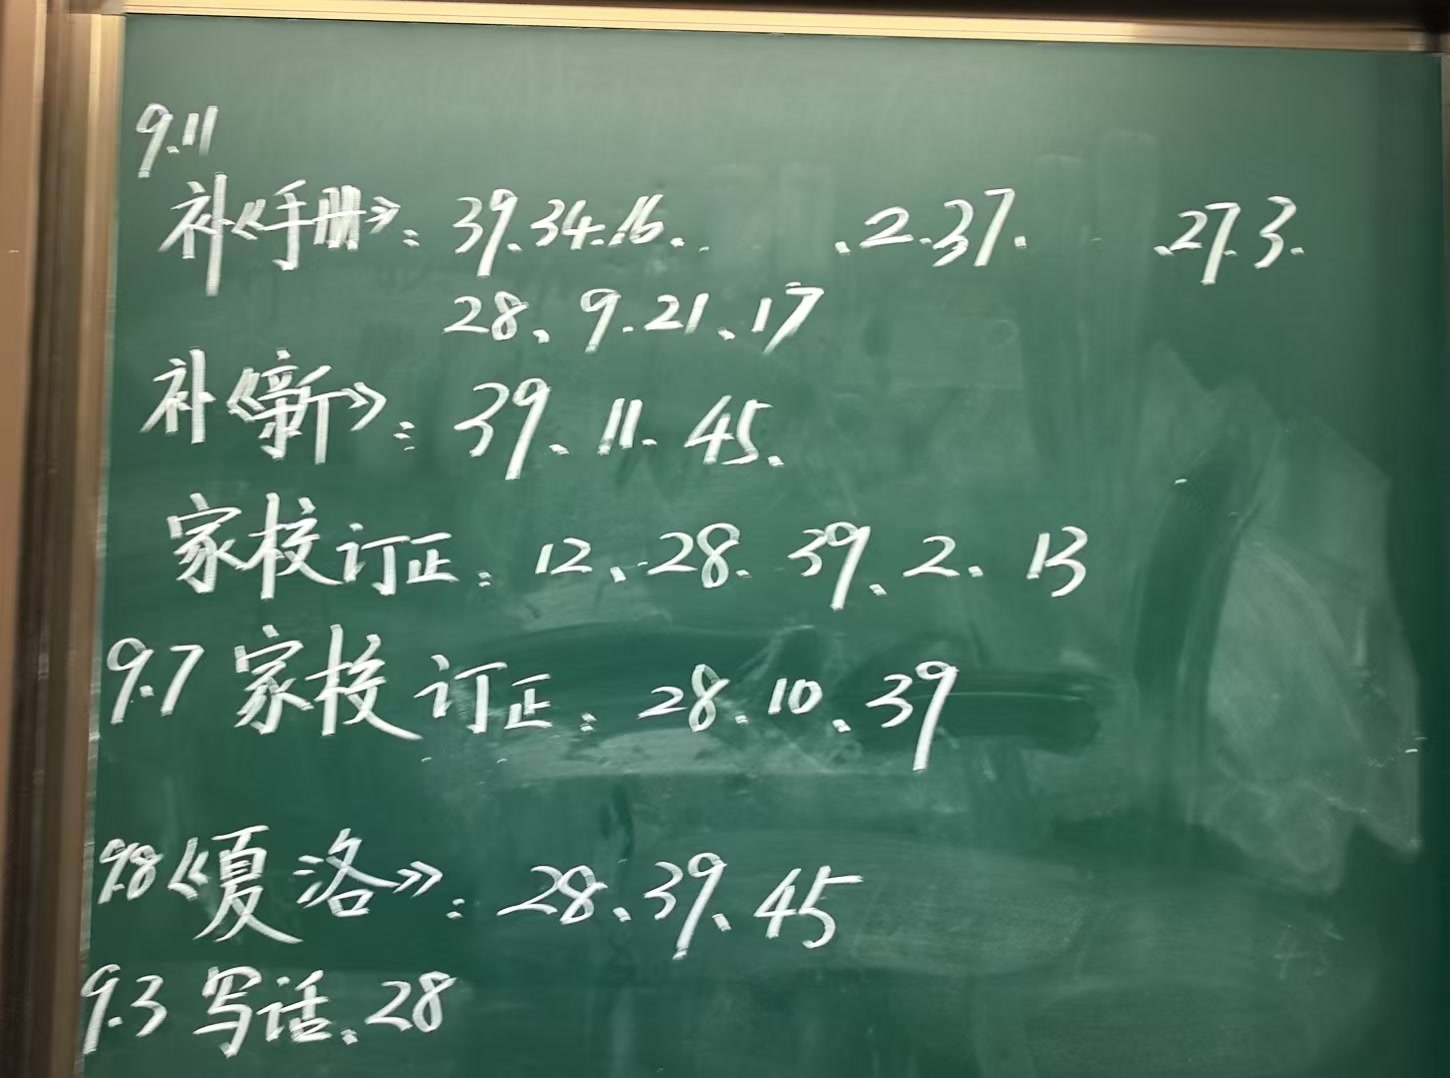 9.11
补《手册》：39、34、16、 、2、37、 、27、3、
28、9、21、17
补《新》：39、11、45、
家校订正：12、28、39、2、13
9.7 家校订正：28、10、39
9.8《夏洛》：28、39、45
9.3 写话、28